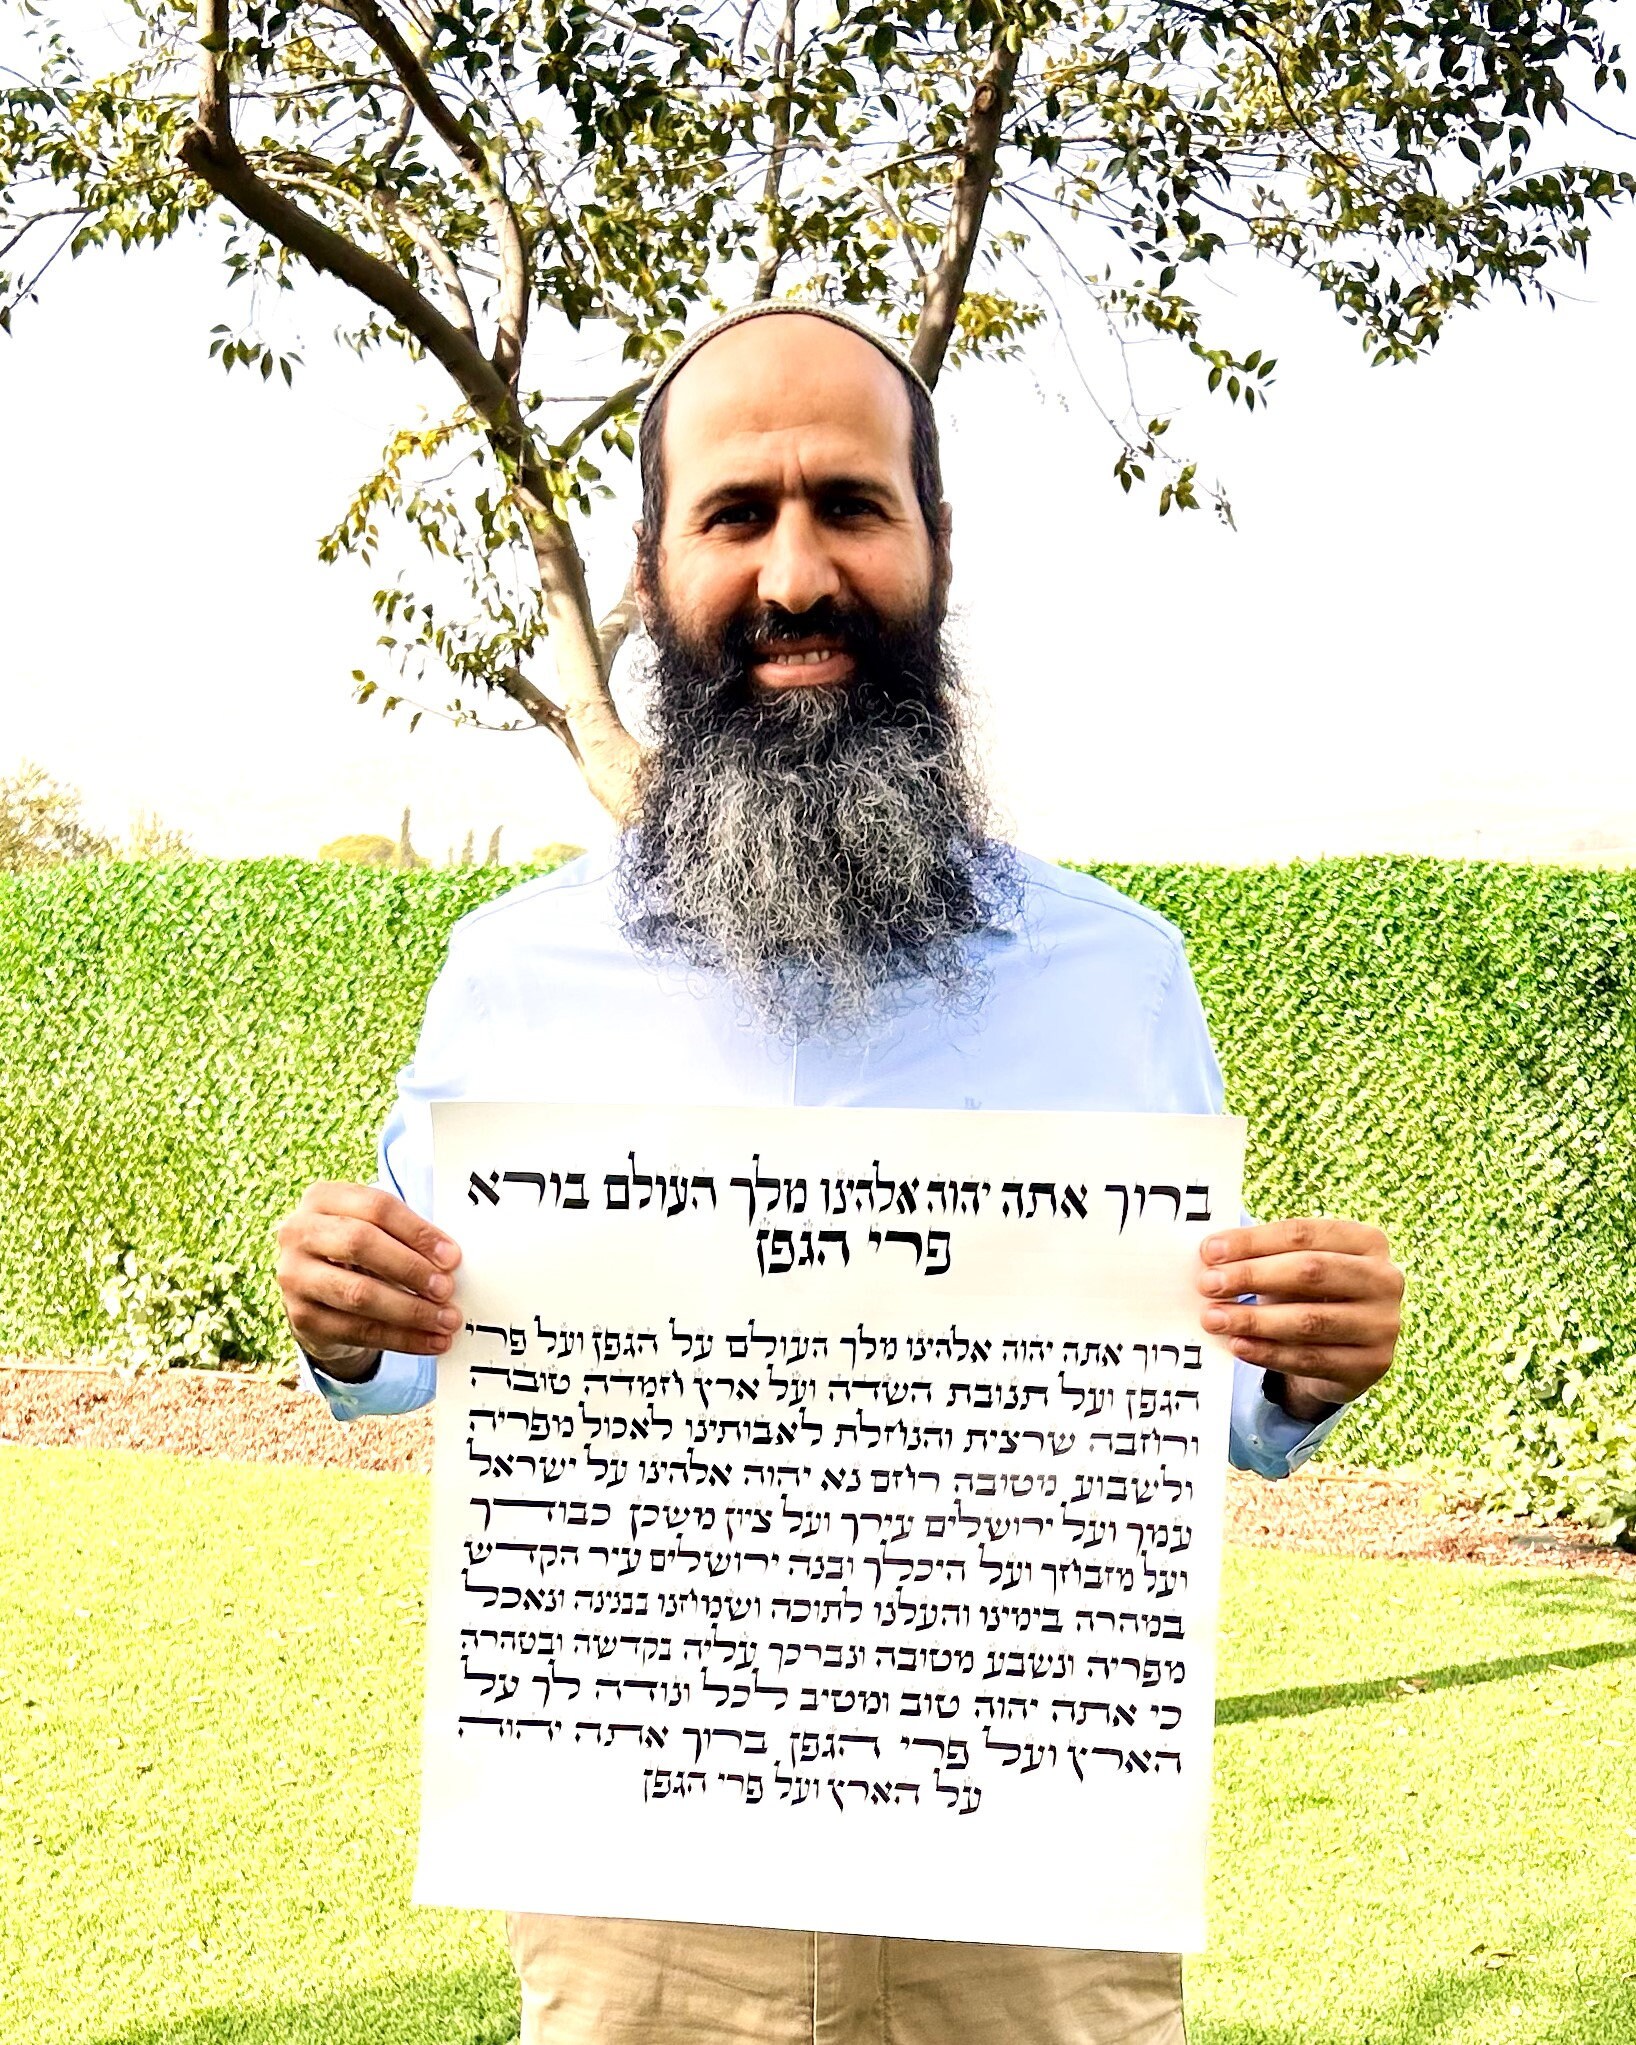 ברוך אתה יהוה אלהינו מלך העולם בורא
פרי הגפן
ברוך אתה יהוה אלהינו מלך העולם על הגפן ועל פרי
הגפן ועל תנובת השדה ועל ארץ חמדה טובה
ורחבה שרצית והנחלת לאבותינו לאכול מפריה
ולשבוע מטובה רחם נא יהוה אלהינו על ישראל
עמך ועל ירושלים עירך ועל ציון משכן כבודך
ועל מזבחך ועל היכלך ובנה ירושלים עיר הקדש
במהרה בימינו והעלנו לתוכה ושמחנו בבנינה ונאכל
מפריה ונשבע מטובה ונברכך עליה בקדשה ובטהרה
כי אתה יהוה טוב ומטיב לכל ונודה לך על
הארץ ועל פרי הגפן ברוך אתה יהוה
על הארץ ועל פרי הגפן